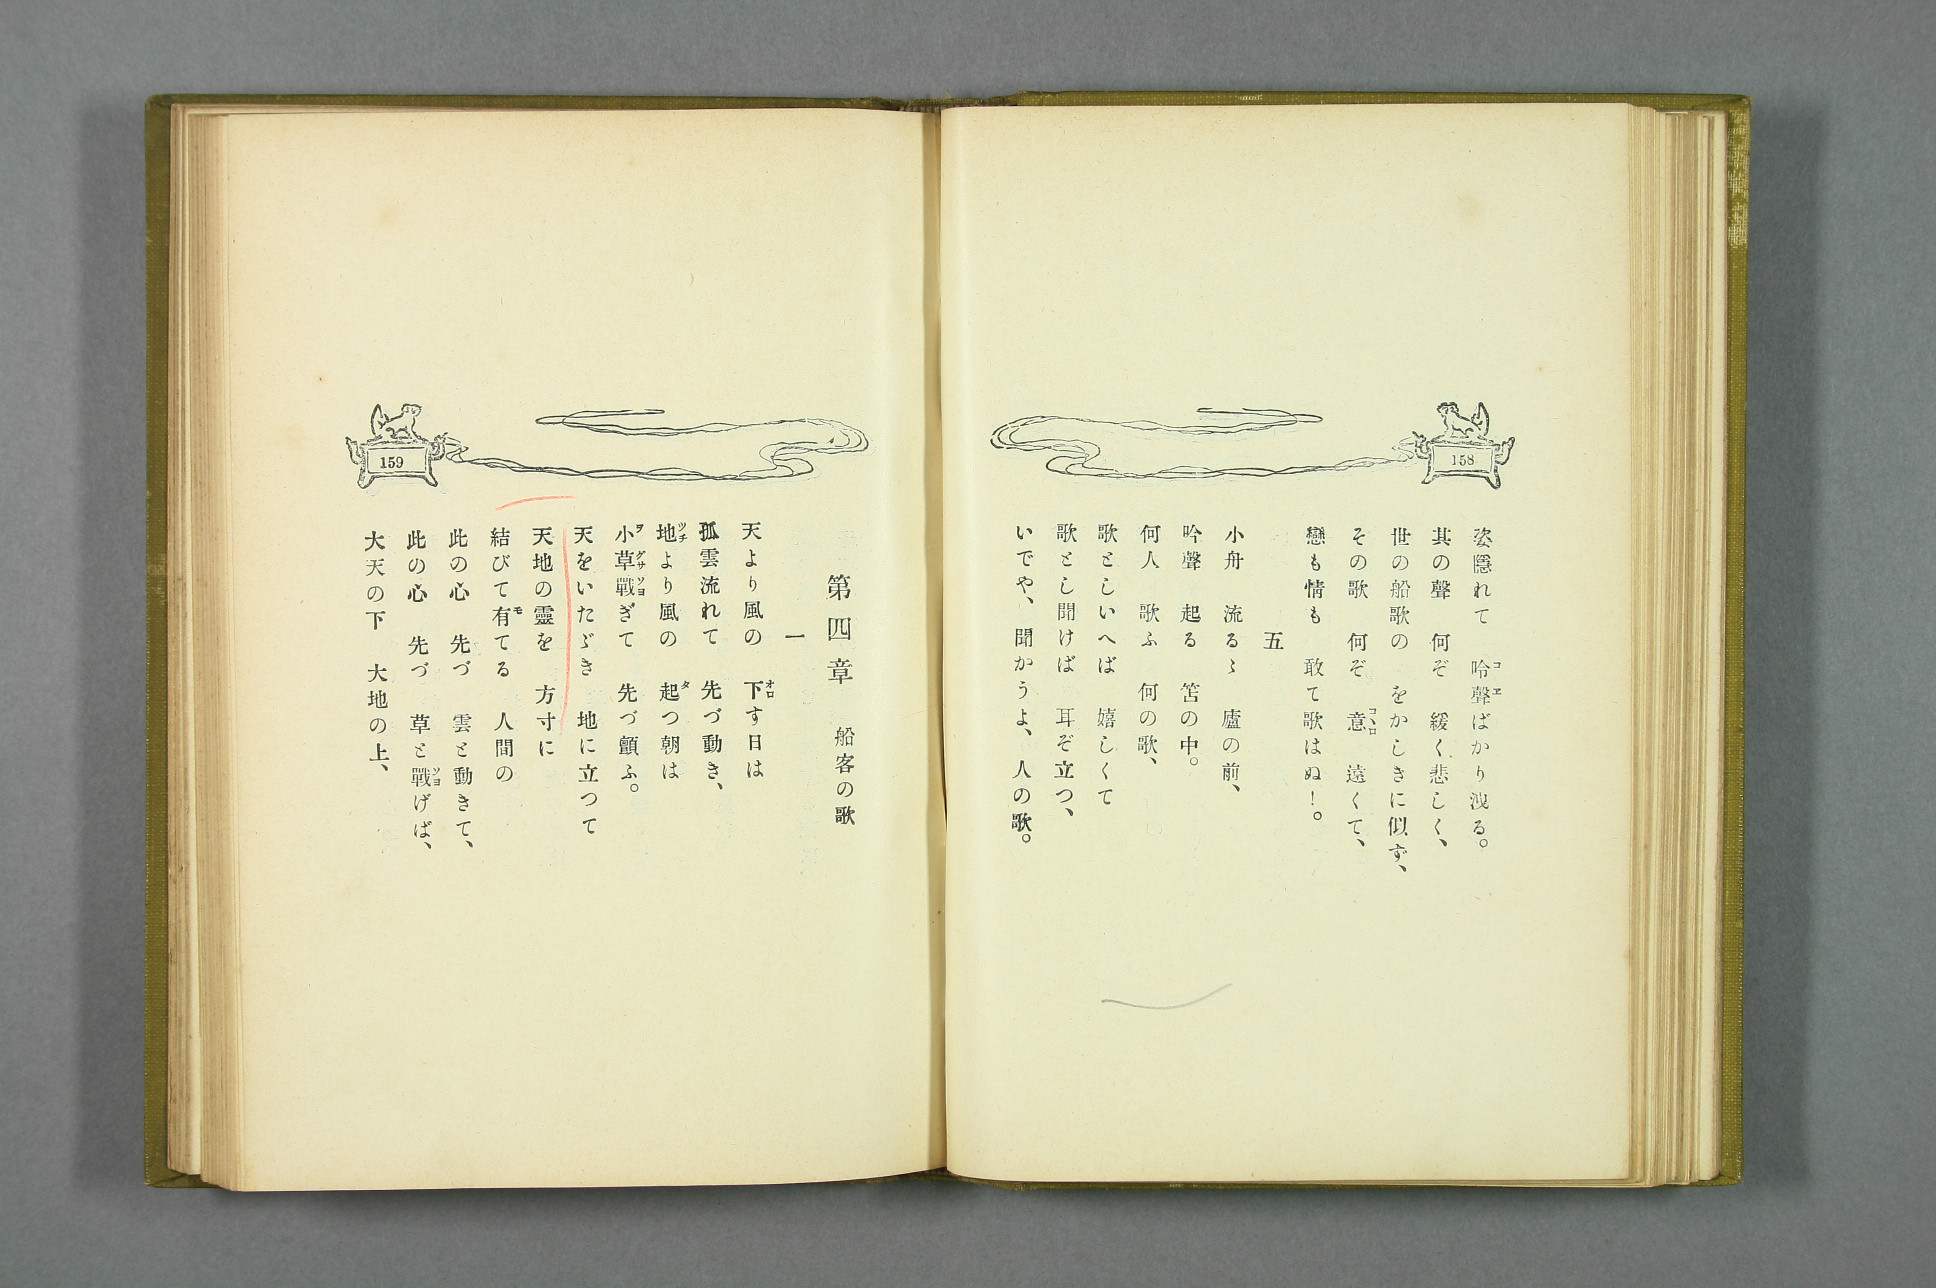 158
姿隱れて　吟聲ばかり洩る。
其の聲　何ぞ　緩く悲しく、
世の船歌の　をかしきに似ず、
その歌　何ぞ　意　遠くて、
戀も情も　敢て歌はぬ！。
五
小舟　流るゝ　廬の前、
吟聲　起る　笘の中。
何人　歌ふ　何の歌、
歌としいへば　嬉しくて
歌とし聞けば　耳ぞ立つ、
いでや、聞かうよ、人の歌。
159
第四章　船客の歌
一
天より風の　下す日は
孤雲流れて　先づ動き、
地より風の　起つ朝は
小草戰ぎて　先づ顫ふ。
天をいたゞき　地に立つて
天地の靈を　方寸に
結びて有てる　人間の
此の心　先づ　雲と動きて、
此の心　先づ　草と戰げば、
大天の下　大地の上、